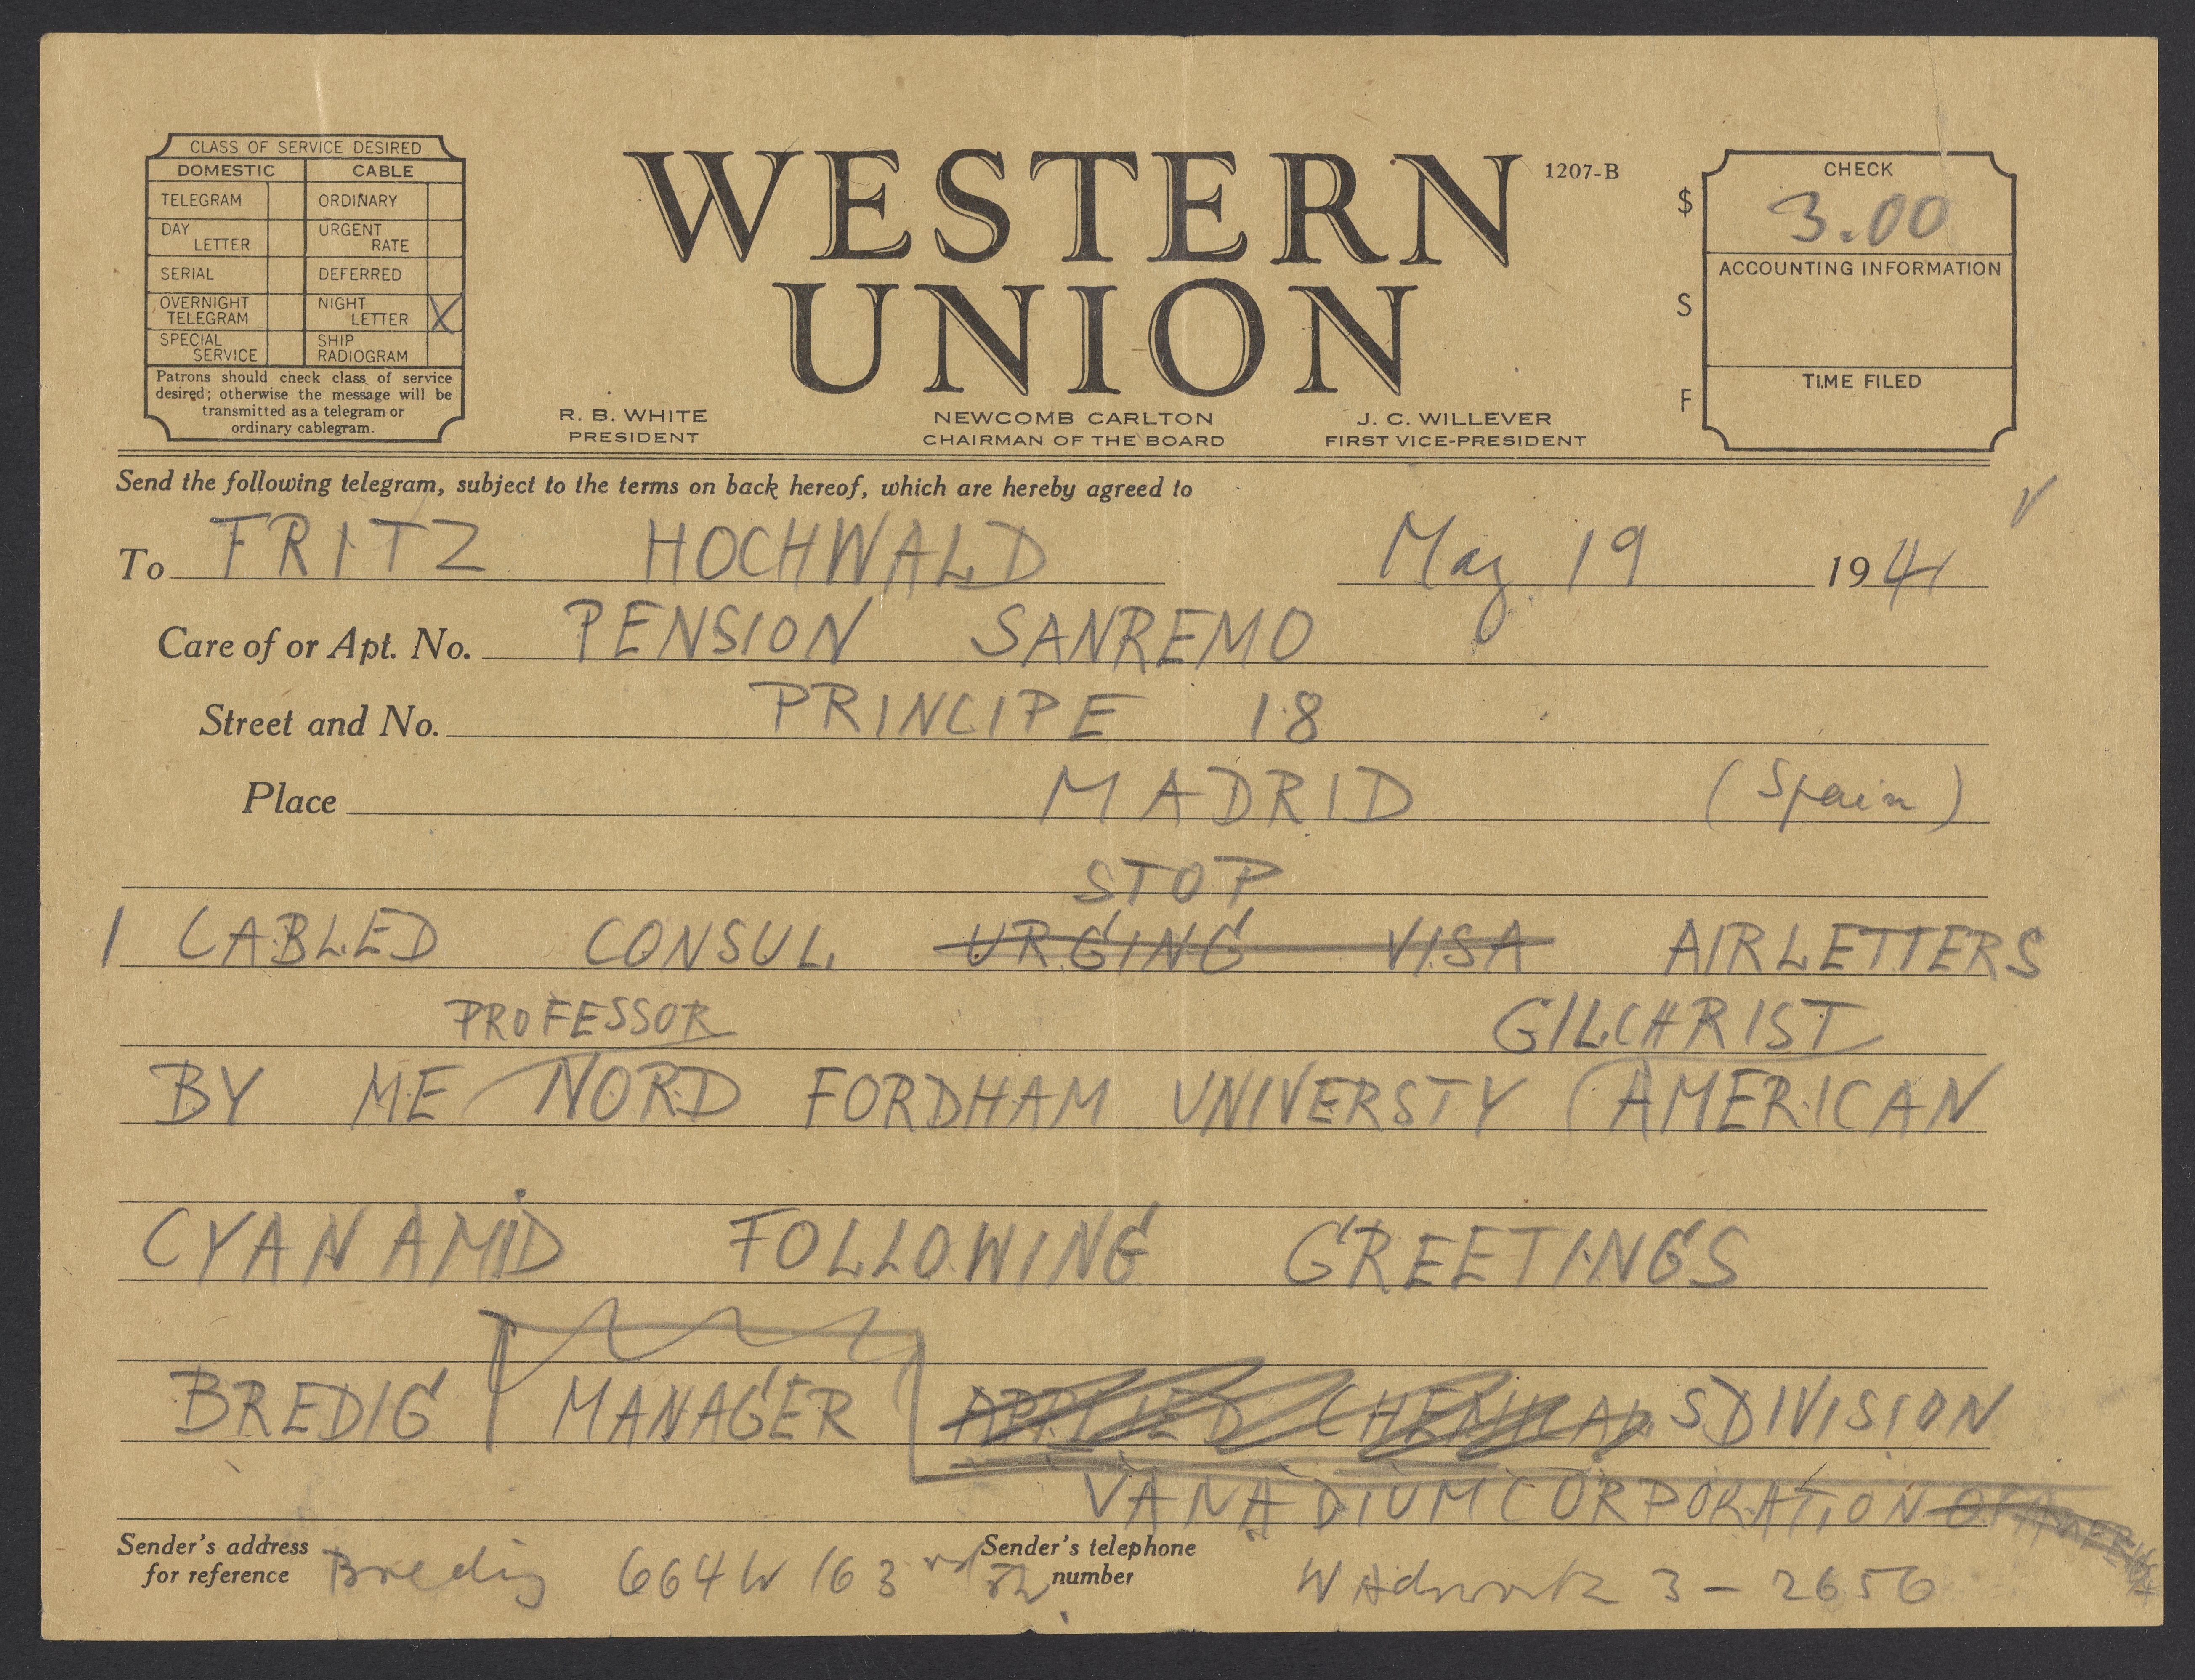 CLASS OF SERVICE DESIRED
DOMESTIC CABLE
TELEGRAM ORDINARY
DAY LETTER URGENT RATE
SERIAL DEFERRED
OVERNIGHT TELEGRAM NIGHT LETTER X
SPECIAL SERVICE SHIP RADIOGRAM
Patrons should check class of service
desired; otherwise the message will be
transmitted as a telegram or
ordinary cablegram.
WESTERN
UNION
1207-B
R. B. WHITE
PRESIDENT
NEWCOMB CARLTON
CHAIRMAN OF THE BOARD
J. C. WILLEVER
FIRST VICE-PRESIDENT
$
S
F
CHECK
3.00
ACCOUNTING INFORMATION
TIME FILED
Send the following telegram, subject to the terms on back hereof, which are hereby agreed to
To FRITZ HOCHWALD May 19 1941
Care of or Apt. No. PENSION SANREMO
Street and No. PRINCIPE 18
Place MADRID (Spain)
STOP
I CABLED CONSUL URGING VISA AIRLETTERS
PROFESSOR GILCHRIST
BY ME NORD FORDHAM UNIVERSTY AMERICAN
CYANAMID FOLLOWING GREETINGS
BREDIG MANAGER APPLIED CHEMICALS DIVISION
VANADIUM CORPORATION OF AMERICA
Sender's address
for reference
Bredig 664 W 163rd St.
Sender's telephone
number
WAdsworth 3-2656